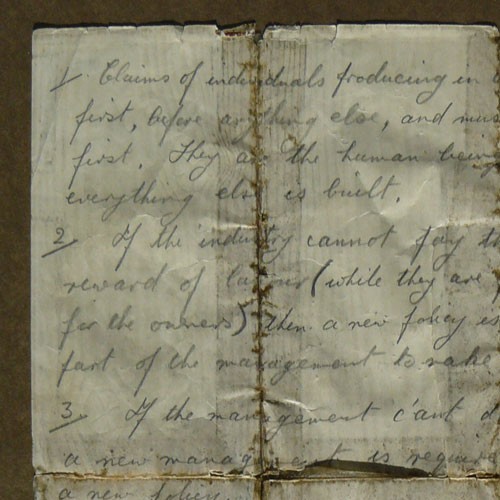 1 Claims of individuals producing in
first, before anything else, and mus
first. They are the human being
everything else is built.
2 If the industry cannot pay t
reward of labour (while they are
for the owners) then a new policy is
part of the management to make
3. If the management c'ant d
a new management is require
a new policy.